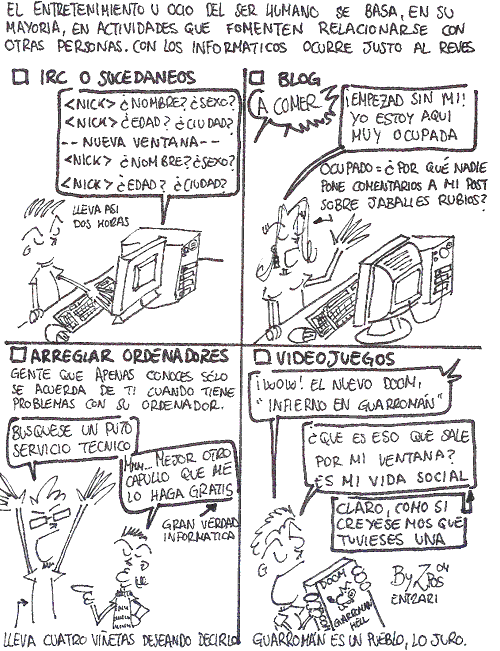 EL ENTRETENIMIENTO U OCIO DEL SER HUMANO SE BASA, EN SU
MAYORIA, EN ACTIVIDADES QUE FOMENTEN RELACIONARSE CON
OTRAS PERSONAS. CON LOS INFORMATICOS OCURRE JUSTO AL REVES
IRC O SUCEDANEOS
<NICK> ¿NOMBRE? ¿SEXO?
<NICK> ¿EDAD? ¿CIUDAD?
-- NUEVA VENTANA --
<NICK> ¿NOMBRE? ¿SEXO?
<NICK> ¿EDAD? ¿CIUDAD?
LLEVA ASI
DOS HORAS
BLOG
A COMER
¡EMPEZAD SIN MI!
YO ESTOY AQUI
MUY OCUPADA
OCUPADO = ¿POR QUÉ NADIE
PONE COMENTARIOS A MI POST
SOBRE JABALIES RUBIOS?
ARREGLAR ORDENADORES
GENTE QUE APENAS CONOCES SÓLO
SE ACUERDA DE TI CUANDO TIENE
PROBLEMAS CON SU ORDENADOR.
BUSQUESE UN PUTO
SERVICIO TECNICO
MMM... MEJOR OTRO
CAPULLO QUE ME
LO HAGA GRATIS
GRAN VERDAD
INFORMATICA
LLEVA CUATRO VIÑETAS DESEANDO DECIRLO
VIDEOJUEGOS
¡WOW! EL NUEVO DOOM,
"INFIERNO EN GUARROMÁN"
¿QUE ES ESO QUE SALE
POR MI VENTANA?
ES MI VIDA SOCIAL
CLARO, COMO SI
CREYESEMOS QUE
TUVIESES UNA
DOOM
GUARROMAN
HELL
GUARROMÁN ES UN PUEBLO, LO JURO.